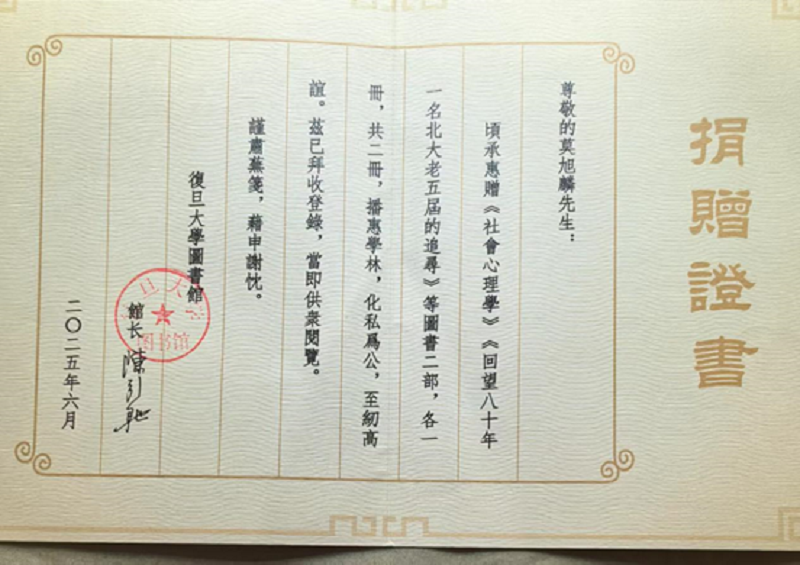 捐贈證書
尊敬的莫旭麟先生：
頃承惠贈《社會心理學》《回望八十年
一名北大老五屆的追尋》等圖書二部，各一
冊，共二冊，播惠學林，化私爲公，至紉高
誼。茲已拜收登錄，當即供衆閱覽。
謹肅蕪箋，藉申謝忱。
復旦大學圖書館
館长 陳引馳
二〇二五年六月
旦大
图书馆